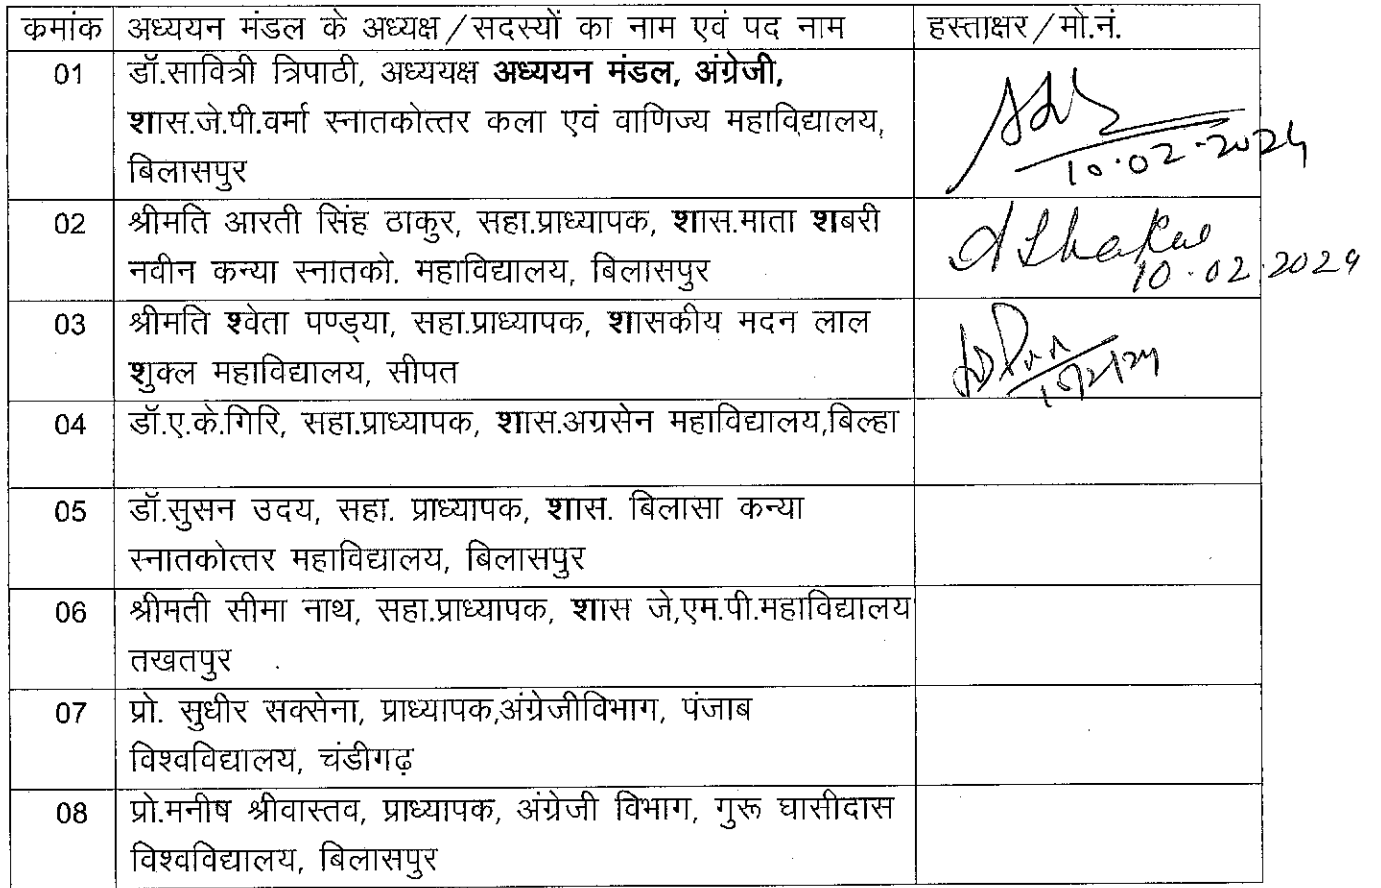 कमांक अध्ययन मंडल के अध्यक्ष/सदस्यों का नाम एवं पद नाम हस्ताक्षर/मो.नं.
01 डॉ.सावित्री त्रिपाठी, अध्ययक्ष अध्ययन मंडल, अंग्रेजी,
शास.जे.पी.वर्मा स्नातकोत्तर कला एवं वाणिज्य महाविद्यालय,
10.02.2024
बिलासपुर
02 श्रीमति आरती सिंह ठाकुर, सहा.प्राध्यापक, शास.माता शबरी
AThakur
नवीन कन्या स्नातको. महाविद्यालय, बिलासपुर 10.02.2024
03 श्रीमति श्वेता पण्ड्या, सहा.प्राध्यापक, शासकीय मदन लाल
शुक्ल महाविद्यालय, सीपत
04 डॉ.ए.के.गिरि, सहा.प्राध्यापक, शास.अग्रसेन महाविद्यालय,बिल्हा
05 डॉ.सुसन उदय, सहा. प्राध्यापक, शास. बिलासा कन्या
स्नातकोत्तर महाविद्यालय, बिलासपुर
06 श्रीमती सीमा नाथ, सहा.प्राध्यापक, शास जे,एम.पी.महाविद्यालय
तखतपुर
07 प्रो. सुधीर सक्सेना, प्राध्यापक,अंग्रेजीविभाग, पंजाब
विश्वविद्यालय, चंडीगढ़
08 प्रो.मनीष श्रीवास्तव, प्राध्यापक, अंग्रेजी विभाग, गुरू घासीदास
विश्वविद्यालय, बिलासपुर